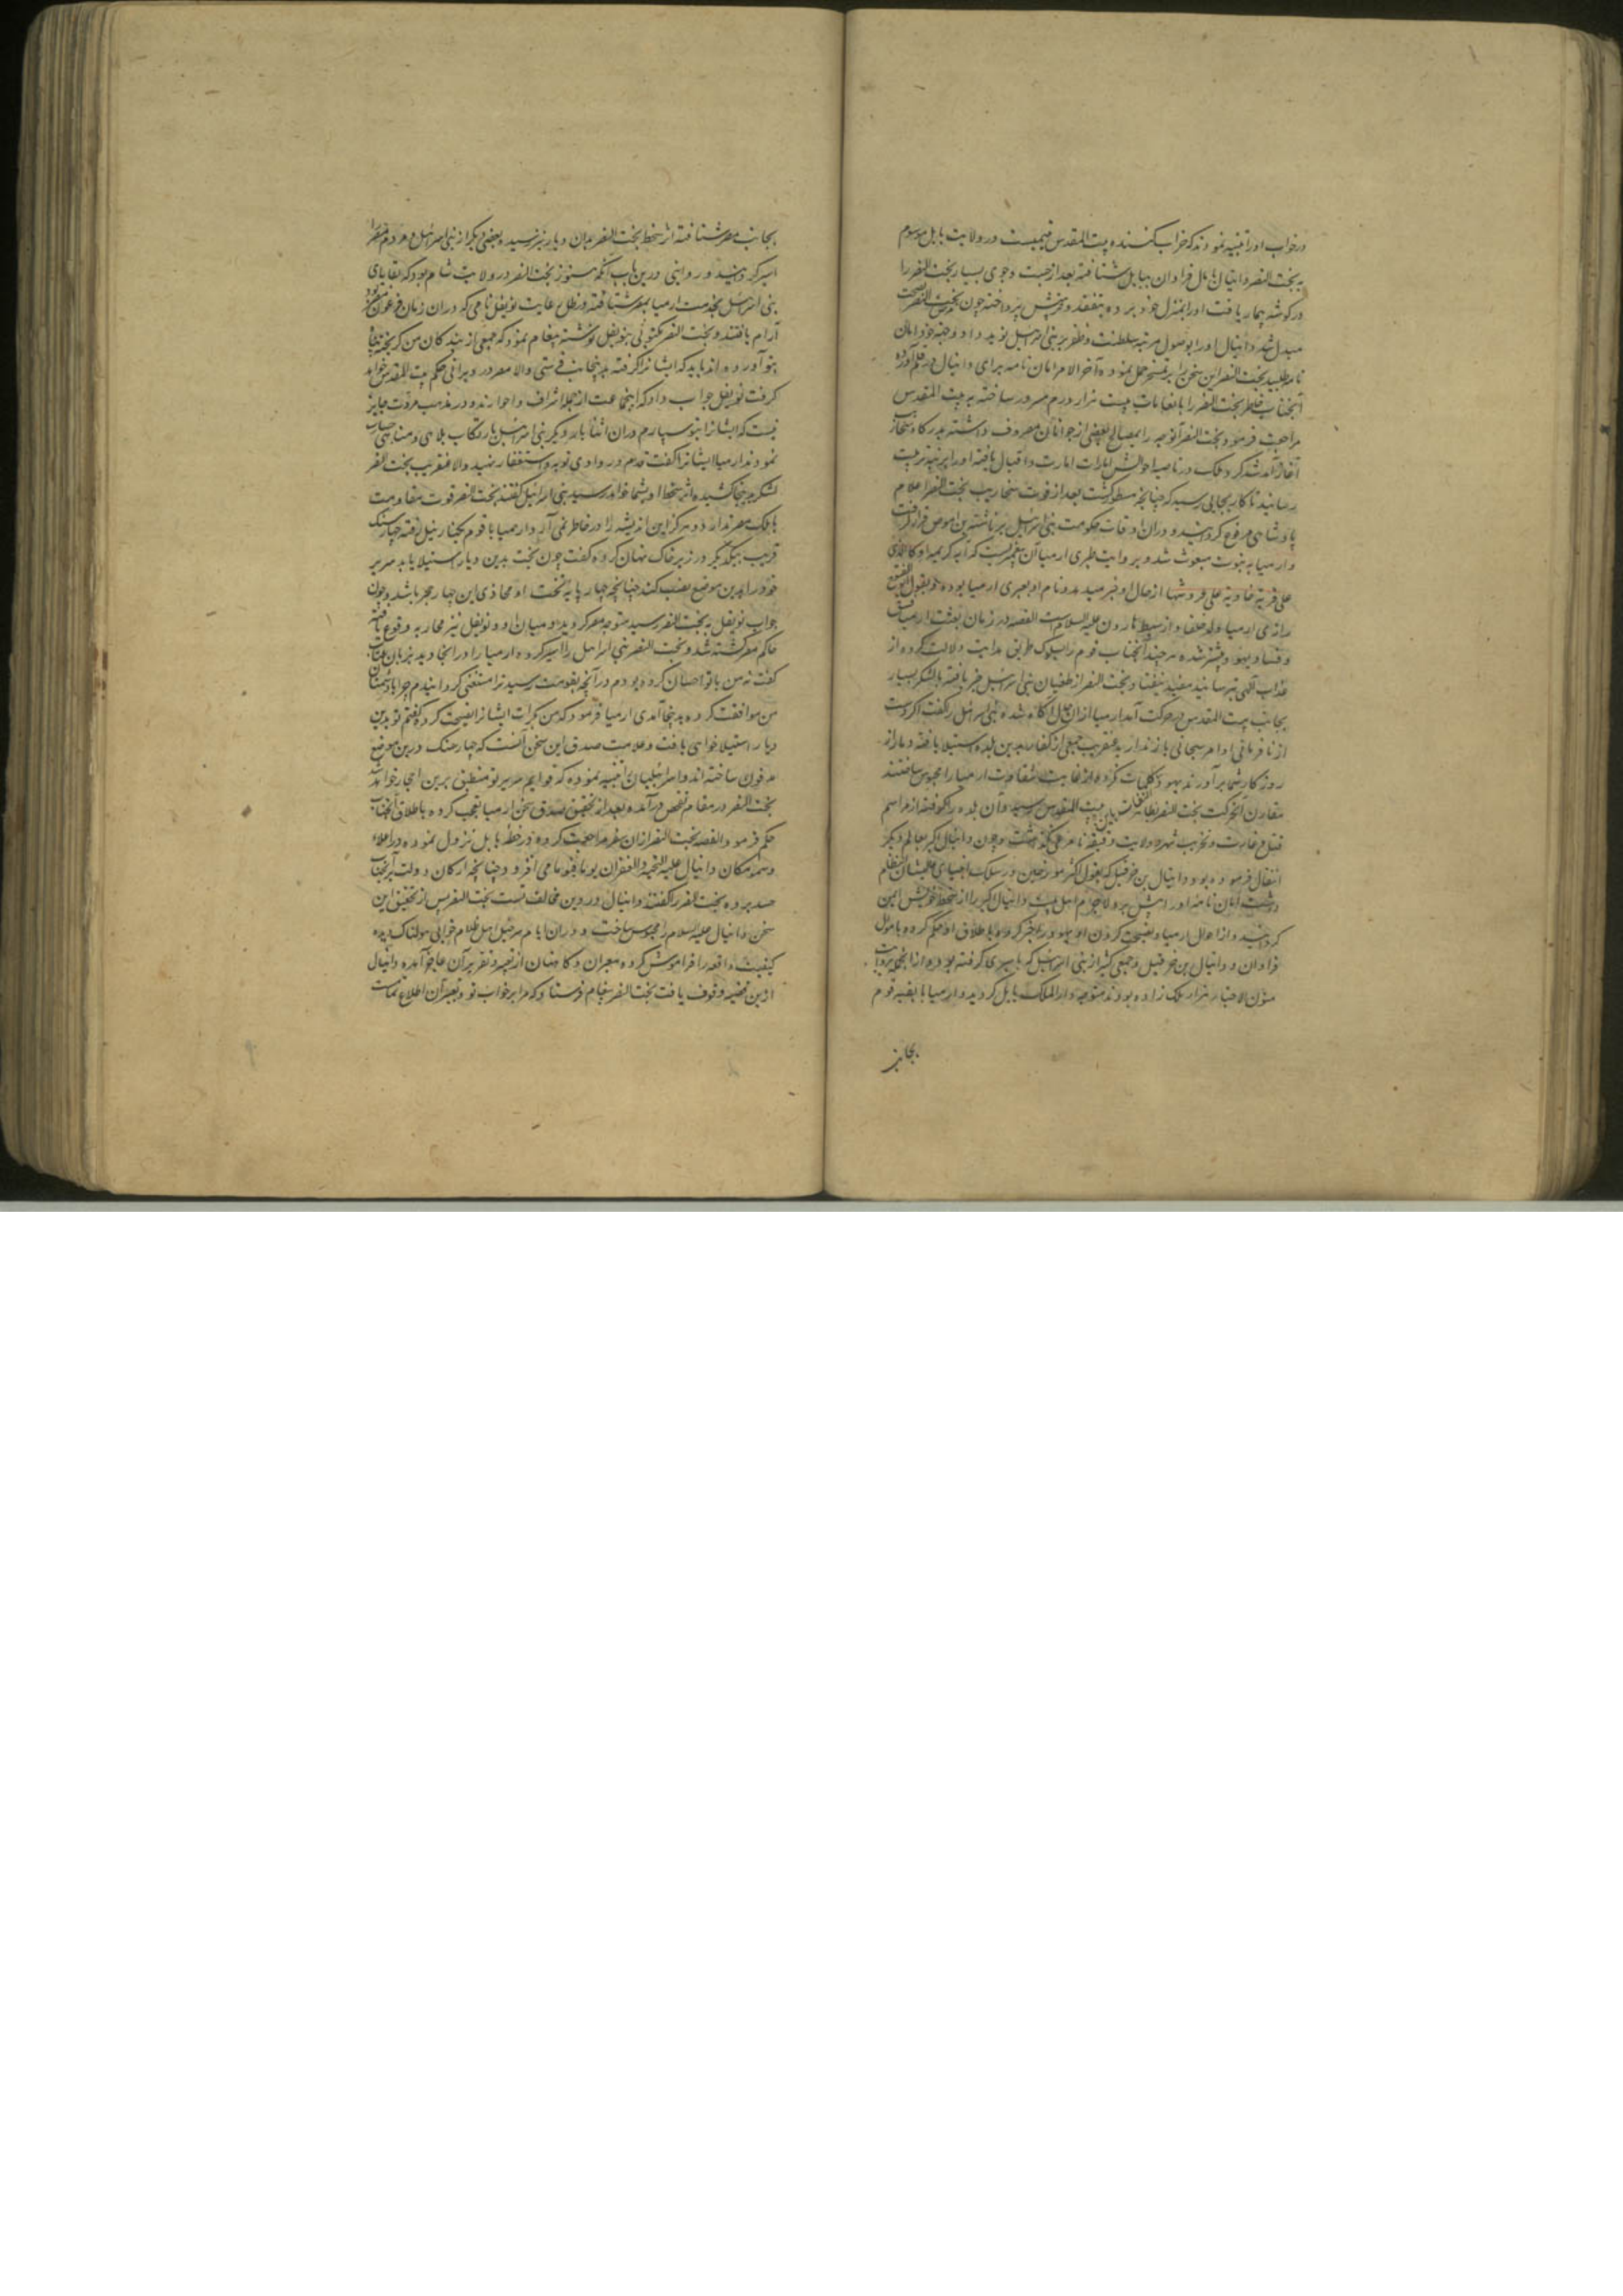 درخواب اورا تنبیه نمودند که خراب کننده بیت المقدس یتیمیست در ولایت بابل موسوم
به بخت النصر و دانیال با مال فراوان ببابل شتافته بعد از جست و جوی بسیار بخت النصر را
در کوشه بیمار یافت اورا بمنزل خود برده بتفقد و پرسش پرداخته چون مرض بخت النصر بصحت
مبدل شد دانیال اورا بوصول مرتبه سلطنت و ظفر بر بنی اسرائیل نوید داد و جهة خود امان
نامه طلبید بخت النصر این سخن را بر تمسخر حمل نموده آخر الامر امان نامه برای دانیال در قلم آورده
آنجناب خاطر بخت النصر را بانعامات بیست هزار درم مسرور ساخته به بیت المقدس
مراجعت فرمود و بخت النصر آنوجه را بمصالح بعضی از جوانان معروف داشته بدرکاه سنحاریب
آغاز آمد شد کرد و ملک در ناصیه احوالش امارات امارت و اقبال یافته اورا بمرتبه تربیت
رسانید تا کار بجایی رسید که چنانچه مسطور کشت بعد از فوت سنحاریب بخت النصر اعلام
پادشاهی مرفوع کردانید و دران اوقات حکومت بنی اسرائیل بر ناشیة بن اموص قرار کرفت
و ارمیا به نبوت مبعوث شد و بروایت طبری ارمیا آن پیغمبریست که آیه کریمه او کالذی مر
علی قریة خاویة علی عروشها از حال او خبر میدهد و نام او بعبری ارمیا بوده و بقول ابو الفتوح
رازی ارمیا ولد خلفا و از سبط هارون علیه السلام است القصه در زمان بعثت ارمیا فسق
و فساد یهود بیشتر شده هر چند آنجناب قوم را بسلوک طریق هدایت دلالت کرده از
عذاب آلهی ترسانید مفید نیفتاد و بخت النصر از طغیان بنی اسرائیل خبر یافته با لشکر بسیار
بجانب بیت المقدس در حرکت آمد ارمیا ازان حال آکاه شده بنی اسرائیل را کفت اکر دست
از نافرمانی اوامر سبحانی باز ندارید عنقریب جمعی از کفار بدین بلده استیلا یافته دمار از
روزکار شما برآورند یهود تکذیبات کرده از غایت شقاوت ارمیا را محبوس ساختند
مقارن آنحرکت بخت النصر بظاهر بیت المقدس رسید و آن بلده را کرفته از مراسم
قتل و غارت و تخریب شهر و ولایت دقیقه نامرعی نکذاشت و چون دانیال اکبر بعالم دیکر
انتقال فرموده بود و دانیال بن حزقیل که بقول اکثر مورخین در سلک انبیای عظیم الشان انتظام
داشت امان نامه اورا پیش برد لاجرم اهل بیت دانیال اکبر را از سخط خویش ایمن
کردانید و از احوال ارمیا و نصیحت کردن او یهود را خبر کرد و باطلاق او حکم کرده و باموال
فراوان و دانیال بن حزقیل و جمعی کثیر از بنی اسرائیل که باسیری کرفته بوده از انجمله بروایت
متون الاخبار هزار ملک زاده بودند متوجه دار الملک بابل کردید و ارمیا با بقیه قوم
بجانب
بجانب مصر شتافته اثر سخط بخت النصر بدان دیار نیز رسیده بعضی دیکر از بنی اسرائیل و مردم مصر را
اسیر کردانید و روایتی درین باب آنکه هنوز بخت النصر در ولایت شام بود که بقایای
بنی اسرائیل بخدمت ارمیا بمصر شتافته در ظل رعایت نوفل نامی که دران زمان فرعون مصر بود
آرام یافتند و بخت النصر مکتوبی بنوفل نوشته پیغام نمود که جمعی از بندکان من کریخته پناه
بتو آورده اند باید که ایشانرا کرفته بدینجانب فرستی والا مصر در ویرانی حکم بیت المقدس خواهد
کرفت نوفل جواب داد که اینجماعت از جمله اشراف و احرارند و در مذهب مروت جایز
نیست که ایشانرا بتو سپارم دران اثنا بار دیکر بنی اسرائیل بارتکاب ملاهی و مناهی جسارت
نمودند ارمیا ایشانرا کفت قدم در وادی توبه و استغفار نهید والا عنقریب بخت النصر
لشکر بدینجا کشیده اثر سخط او بشما خواهد رسید بنی اسرائیل کفتند بخت النصر قوت مقاومت
با ملک مصر ندارد و هرکز این اندیشه را در خاطر نمی آرد ارمیا با قوم بکنار نیل رفته چهار سنک
قریب بیکدیکر در زیر خاک نهان کرده کفت چون بخت بدین دیار استیلا یابد سریر
خود را بدین موضع نصب کند چنانچه چهار پایه تخت او محاذی این چهار حجر باشد و چون
جواب نوفل به بخت النصر رسید متوجه مصر کردید و میان او و نوفل نیز محاربه وقوع یافته
حاکم مصر کشته شد و بخت النصر بنی اسرائیل را اسیر کرده ارمیا را در انجا دید بزبان عتاب
کفت نه من با تو احسان کرده بودم و در آنچه بقومت رسید ترا مستغنی کردانیدم چرا با دشمنان
من موافقت کرده بدینجا آمدی ارمیا فرمود که من بکرات ایشانرا نصیحت کرده کفتم تو بدین
دیار استیلا خواهی یافت و علامت صدق این سخن آنست که چهار سنک درین موضع
مدفون ساخته اند و اسرائیلیان را تنبیه نموده که قوایم سریر تو منطبق برین احجار خواهد شد
بخت النصر در مقام تفحص درآمده بعد از تحقیق صدق سخن ارمیا تعجب کرده باطلاق آنجناب
حکم فرمود القصه بخت النصر ازان سفر مراجعت کرده در خطه بابل نزول نموده در اعلاء
و سمو مکان دانیال علیه التحیة و الغفران یوما فیوما می افزود چنانچه ارکان دولت بر آنجناب
حسد برده بخت النصر را کفتند دانیال در دین مخالف تست بخت النصر پس از تحقیق این
سخن دانیال علیه السلام را محبوس ساخت و دران ایام سرخیل اهل ظلام خوابی هولناک دیده
کیفیت واقعه را فراموش کرده معبران و کاهنان از تعبیر و تقریر آن عاجز آمدند و دانیال
ازین قضیه وقوف یافت بخت النصر پیغام فرستاد که مرا بر خواب تو و تعبیر آن اطلاع تمامست